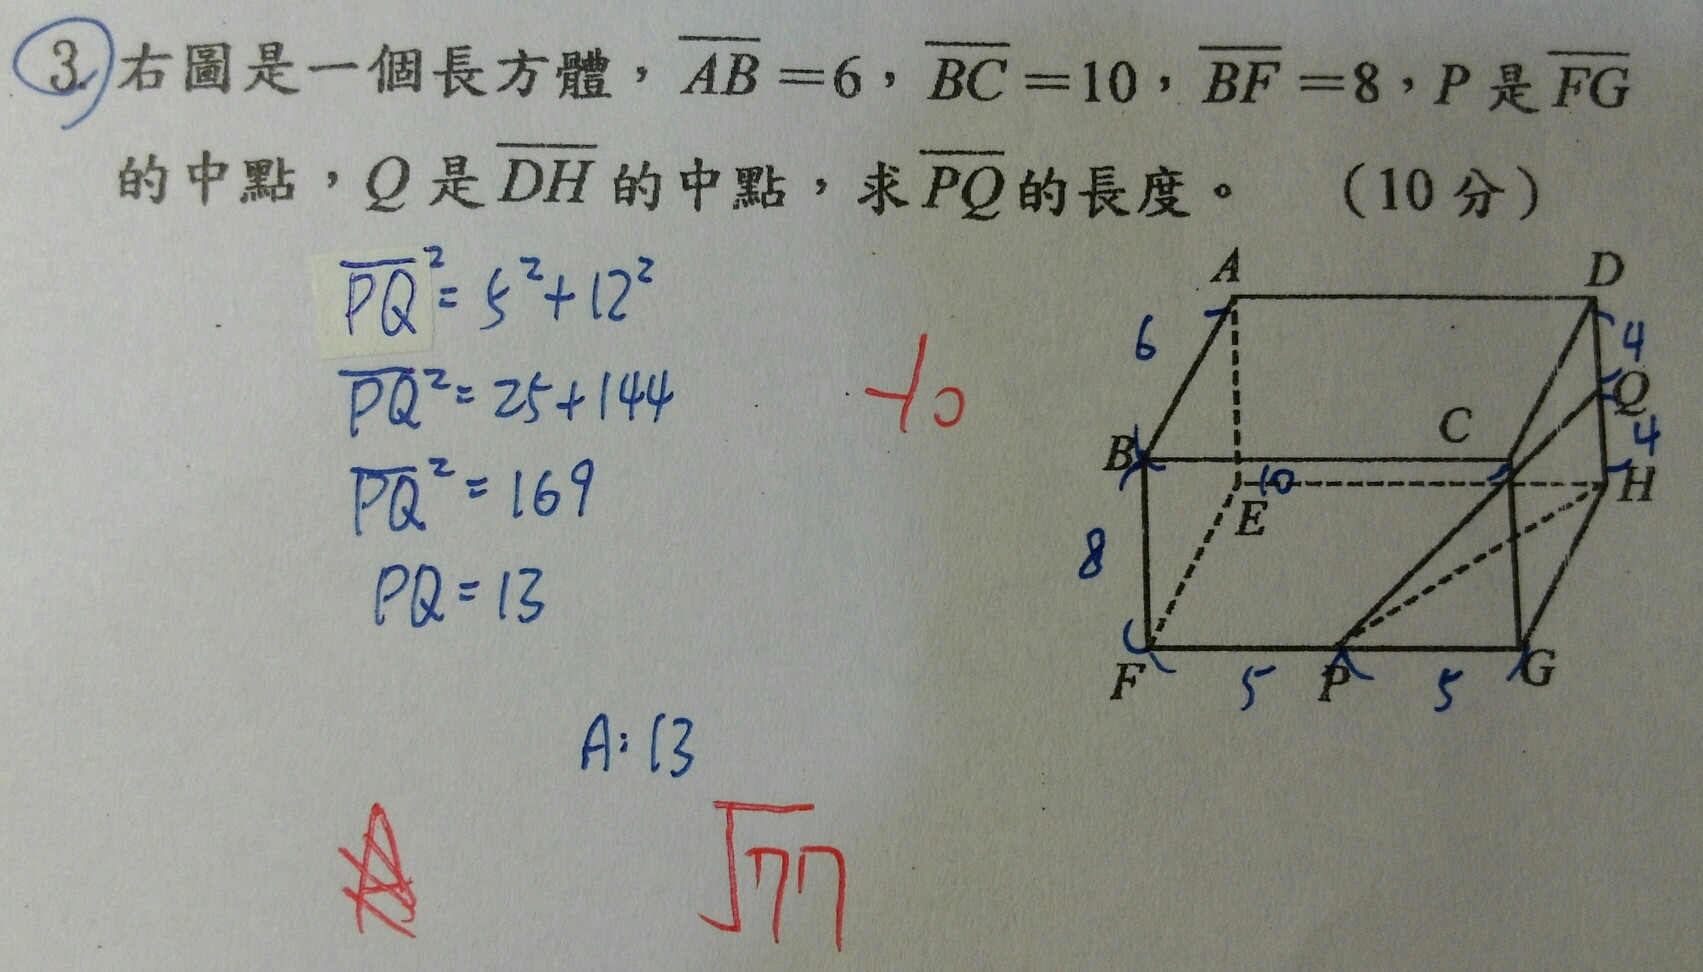 3. 右圖是一個長方體，AB=6，BC=10，BF=8，P是FG
的中點，Q是DH的中點，求PQ的長度。 （10分）
PQ²=5²+12²
PQ²=25+144
PQ²=169
PQ=13
A:13
-10
√77
A
D
6
4
Q
C
4
B
10
H
E
8
F
5
P
5
G